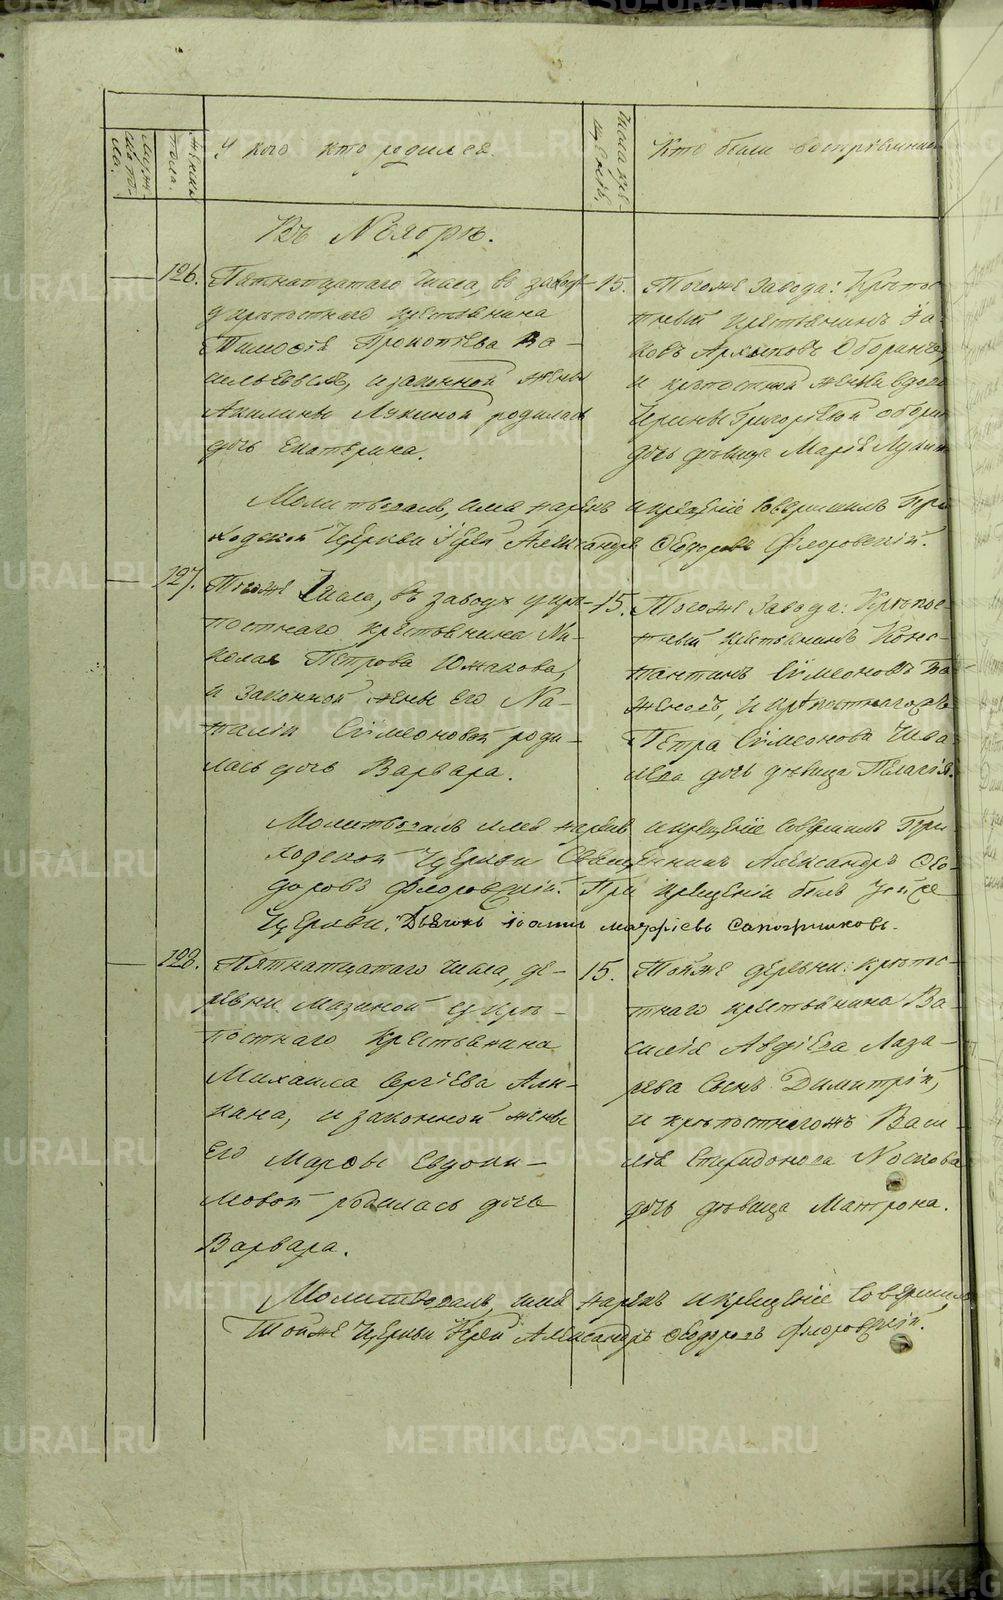 Мужеска пола.
Женска пола.
У кого кто родился.
Числа крещенія.
Кто были восприемники
Въ Ноябрѣ.
126. Пятнатцатаго Числа, въ заводѣ
у крѣпостнаго крестьянина
Тимофѣя Прокопіева Ва-
сильевыхъ, и законной жены
Акилины Лукиной родилась
дочь Екатерина.
15. Тогоже Завода: Крѣпос-
тный Крестьянинъ Іа-
ковъ Оборинъ,
и крѣпостной жены вдовы
Ирины Григоріевой Оборин
дочь дѣвица Марія Лукин
Молитвовалъ, имя нарекъ и крещеніе совершилъ При-
ходской Церкви Іерей Александръ Ѳеодоровъ Флоровскій.
127. Тогоже Числа, въ заводѣ у крѣ-
постнаго крестьянина Ни-
колая Петрова Южакова,
и законной жены его На-
таліи Сѵмеоновой роди-
лась дочь Варвара.
15. Тогоже Завода: Крѣпос-
тный Крестьянинъ Конс-
тантинъ Сѵмеоновъ Ба
женовъ, и крѣпостнагожъ
Петра Сѵмеонова
дочь дѣвица Пелагія.
Молитвовалъ имя нарекъ и крещеніе совершилъ При-
ходской Церкви Священникъ Александръ Ѳео-
доровъ Флоровскій. При крещеніи былъ тойже
Церкви. Дьячокъ Іоаннъ Матфіевъ Сапожниковъ.
128. Пятнатцатаго Числа, де-
ревни Мазиной у крѣ-
постнаго Крестьянина
Михаила Сергіева Али-
кина, и законной жены
Его Марфы Евдоки-
мовой родилась дочь
Варвара.
15. Тойже деревни: крѣпос-
тнаго крестьянина Ва-
силія Авдіева Лаза-
рева Сынъ Димитрій,
и крѣпостнагожъ Васи-
лія Спиридонова Носкова
дочь дѣвица Матрона.
Молитвовалъ, имя нарекъ и крещеніе совершилъ
тойже Церкви Іерей Александръ Ѳеодоровъ Флоровскій.
METRIKI.GASO-URAL.RU